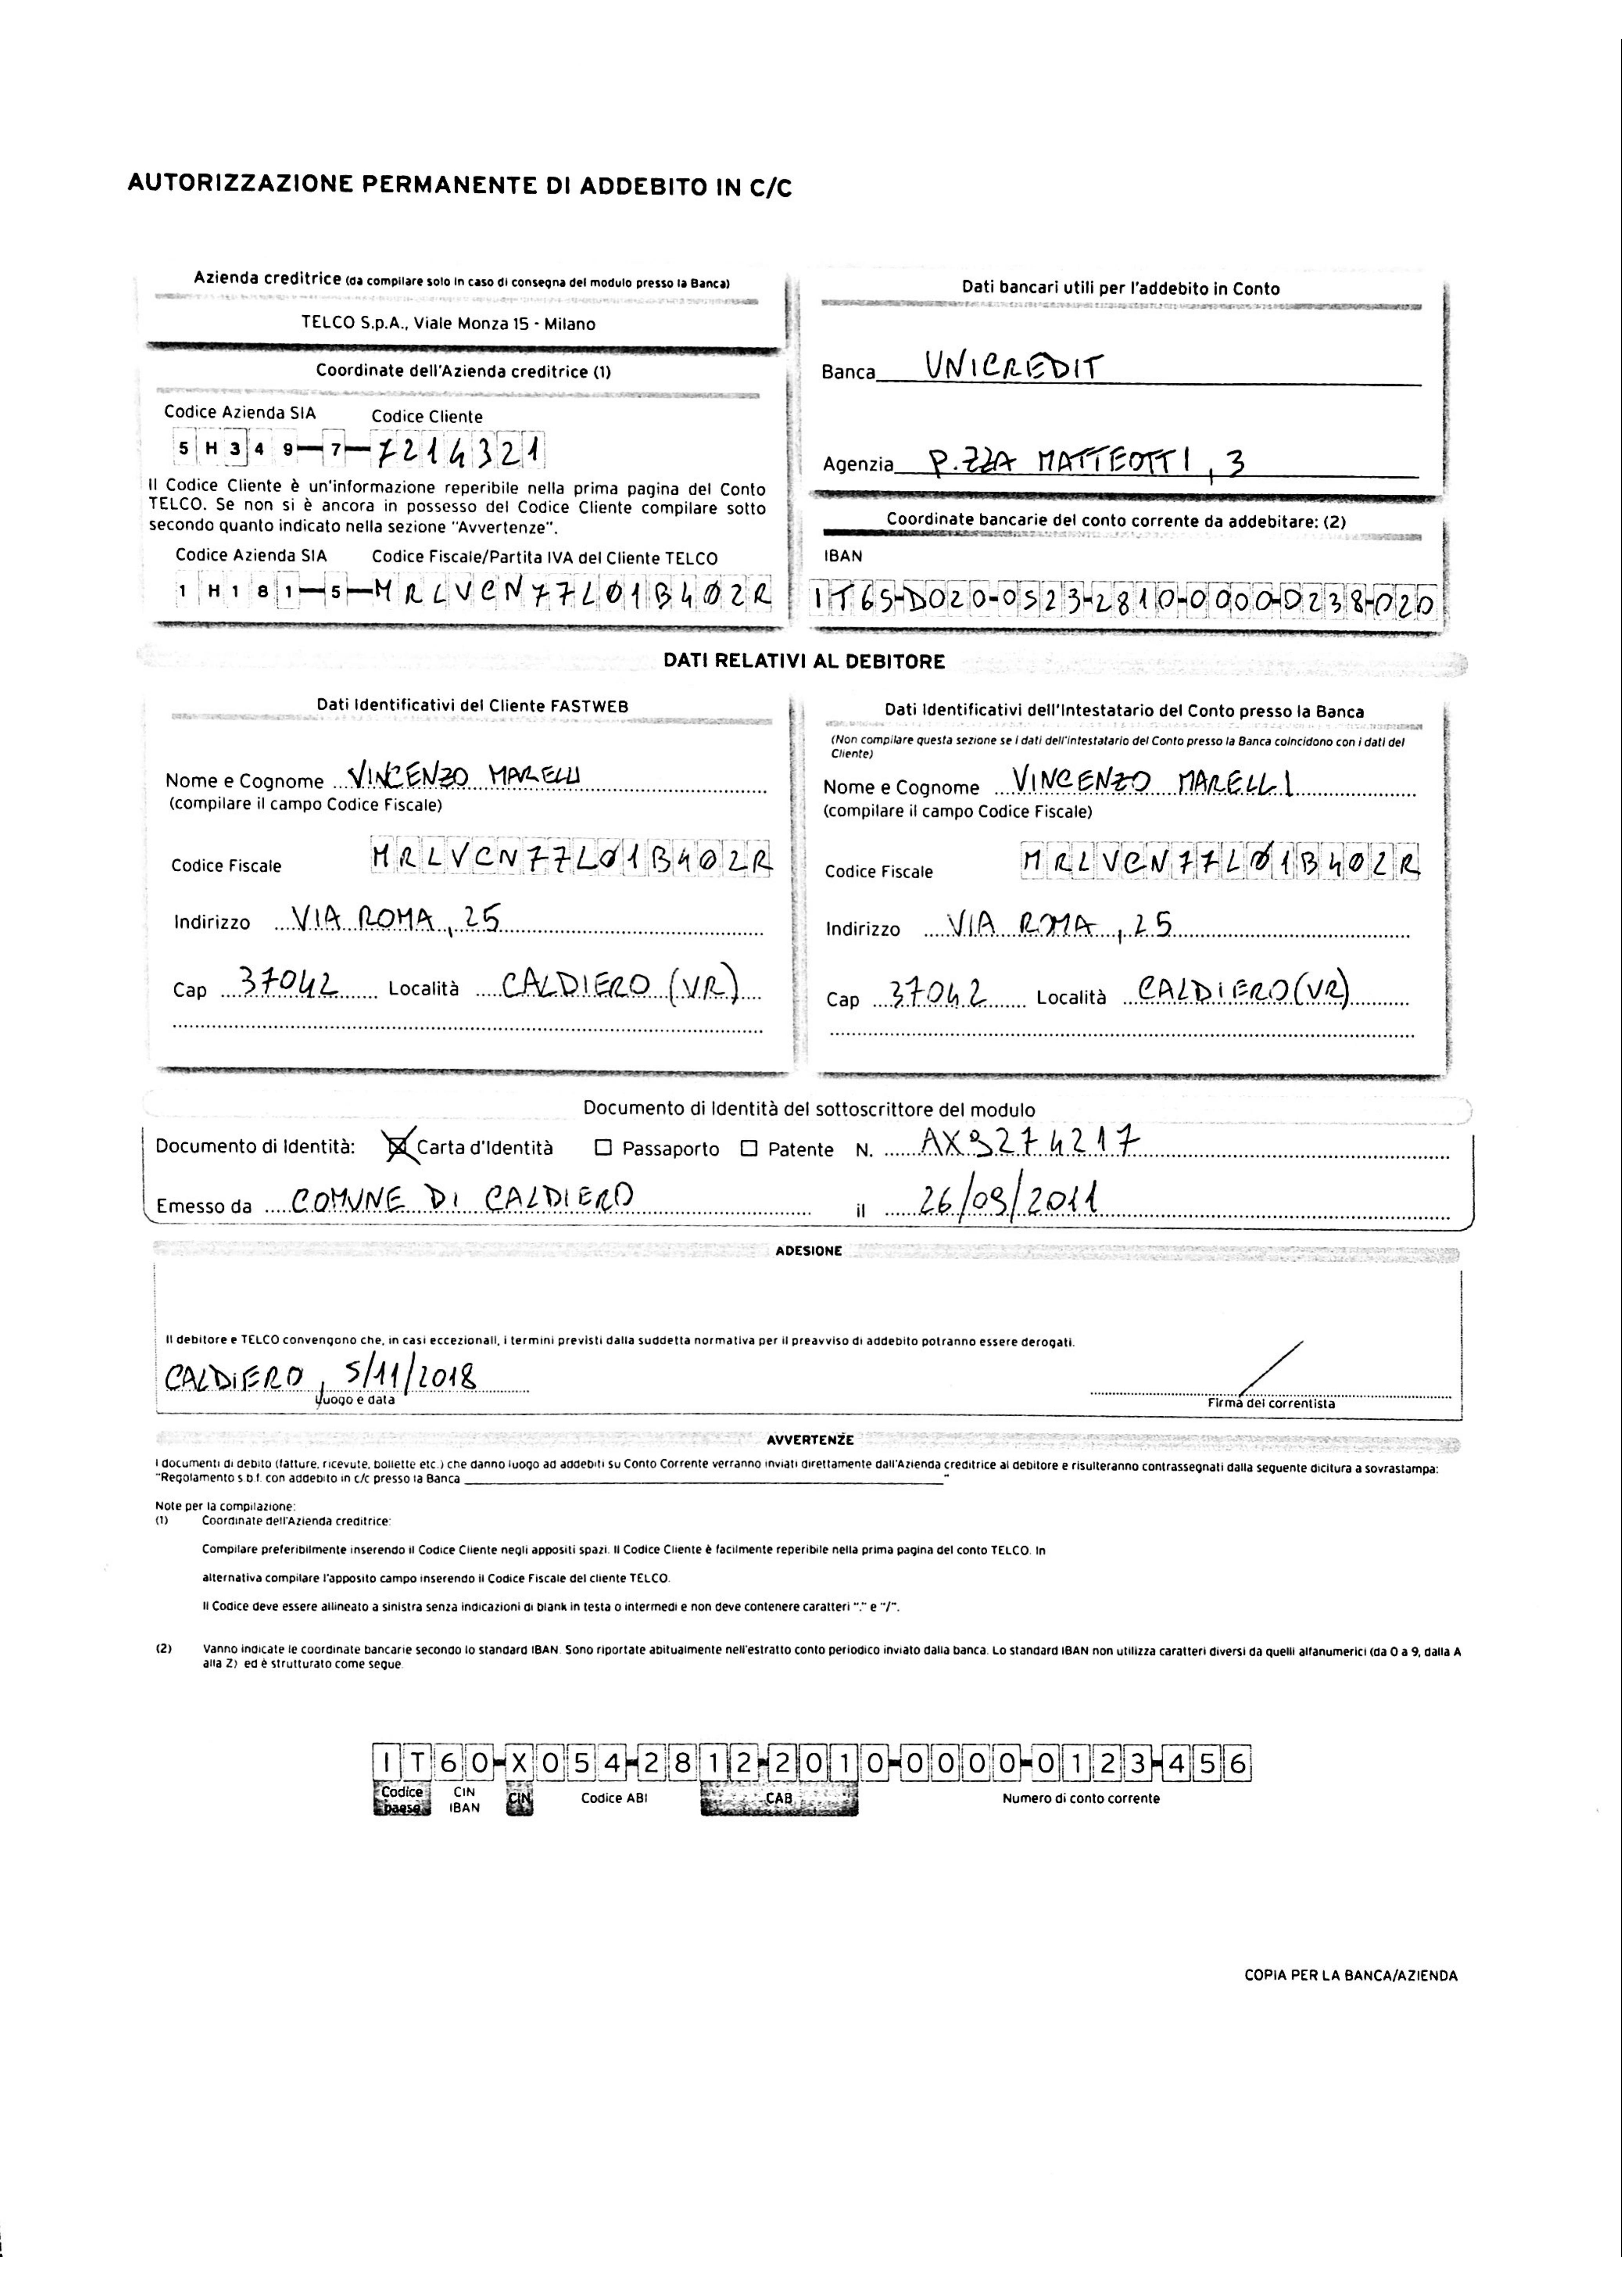 AUTORIZZAZIONE PERMANENTE DI ADDEBITO IN C/C
Azienda creditrice (da compilare solo in caso di consegna del modulo presso la Banca)
TELCO S.p.A., Viale Monza 15 - Milano
Coordinate dell'Azienda creditrice (1)
Codice Azienda SIA Codice Cliente
5 H 3 4 9 - 7 - 7214321
Il Codice Cliente è un'informazione reperibile nella prima pagina del Conto
TELCO. Se non si è ancora in possesso del Codice Cliente compilare sotto
secondo quanto indicato nella sezione "Avvertenze".
Codice Azienda SIA Codice Fiscale/Partita IVA del Cliente TELCO
1 H 1 8 1 - 5 - MRLVCN77L01B402R
Dati bancari utili per l'addebito in Conto
Banca UNICREDIT
Agenzia P.ZZA MATTEOTTI, 3
Coordinate bancarie del conto corrente da addebitare: (2)
IBAN
IT65-D020-0523-2810-0000-0238-020
DATI RELATIVI AL DEBITORE
Dati Identificativi del Cliente FASTWEB
Nome e Cognome VINCENZO MARELLI
(compilare il campo Codice Fiscale)
Codice Fiscale MRLVCN77L01B402R
Indirizzo VIA ROMA, 25
Cap 37042 Località CALDIERO (VR)
Dati Identificativi dell'Intestatario del Conto presso la Banca
(Non compilare questa sezione se i dati dell'intestatario del Conto presso la Banca coincidono con i dati del
Cliente)
Nome e Cognome VINCENZO MARELLI
(compilare il campo Codice Fiscale)
Codice Fiscale MRLVCN77L01B402R
Indirizzo VIA ROMA, 25
Cap 37042 Località CALDIERO (VR)
Documento di Identità del sottoscrittore del modulo
Documento di Identità: Carta d'Identità Passaporto Patente N. AX9274217
Emesso da COMUNE DI CALDIERO il 26/09/2011
ADESIONE
Il debitore e TELCO convengono che, in casi eccezionali, i termini previsti dalla suddetta normativa per il preavviso di addebito potranno essere derogati.
CALDIERO, 5/11/2018
Luogo e data Firma del correntista
AVVERTENZE
I documenti di debito (fatture, ricevute, bollette etc.) che danno luogo ad addebiti su Conto Corrente verranno inviati direttamente dall'Azienda creditrice al debitore e risulteranno contrassegnati dalla seguente dicitura a sovrastampa:
"Regolamento s.b.f. con addebito in c/c presso la Banca "
Note per la compilazione:
(1) Coordinate dell'Azienda creditrice:
Compilare preferibilmente inserendo il Codice Cliente negli appositi spazi. Il Codice Cliente è facilmente reperibile nella prima pagina del conto TELCO. In
alternativa compilare l'apposito campo inserendo il Codice Fiscale del cliente TELCO.
Il Codice deve essere allineato a sinistra senza indicazioni di blank in testa o intermedi e non deve contenere caratteri "." e "/".
(2) Vanno indicate le coordinate bancarie secondo lo standard IBAN. Sono riportate abitualmente nell'estratto conto periodico inviato dalla banca. Lo standard IBAN non utilizza caratteri diversi da quelli alfanumerici (da 0 a 9, dalla A
alla Z) ed è strutturato come segue.
IT60-X054-2812-2010-0000-0123-456
Codice paese CIN IBAN CIN Codice ABI CAB Numero di conto corrente
COPIA PER LA BANCA/AZIENDA